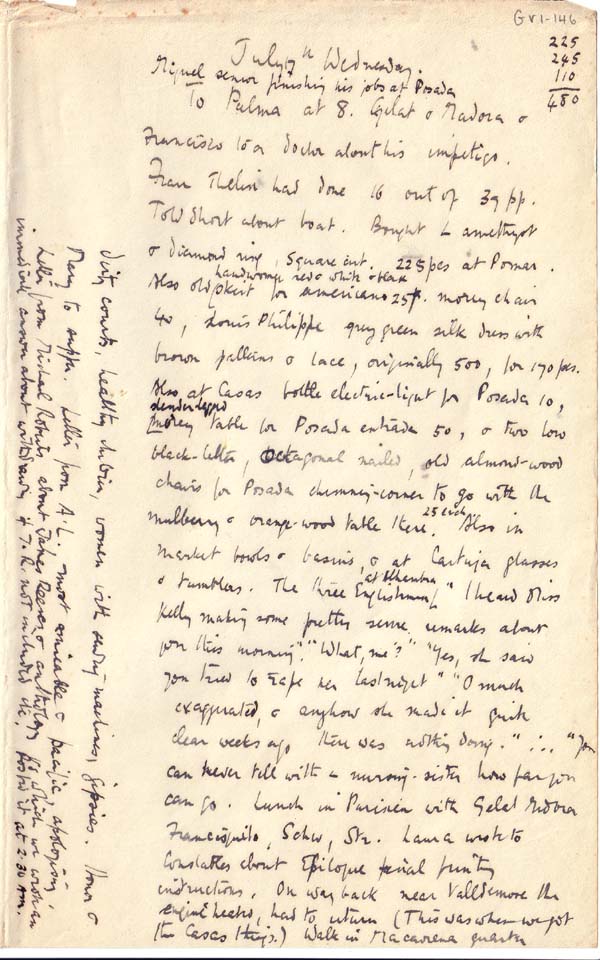 GV1-146
225
245
110
480
July 7th Wednesday.
Miguel senior finishing his jobs at Posada
To Palma at 8. Gelat & Madora &
Francisco to a doctor about his impetigo.
Frau Thelisi had done 16 out of 39 pp.
Told Short about boat. Bought L amethyst
& diamond ring, square cut. 225 pes at Pomar.
handwoven red & white & black
Also old for americana 25p. money chair
40, Louis Philippe grey green silk dress with
brown pattern & lace, originally 500, for 170 pes.
Also at Casas bottle electric-light for Posada 10,
slender-legged
table for Posada entrada 50, & two low
black-letter, octagonal nailed, old almond-wood
chairs for Posada chimney-corner to go with the
25 each
mulberry & orange-wood table there. Also in
market bowls & basins, & at Cartuja glasses
at Alhambra
& tumblers. The three Englishmen, "I heard Miss
Kelly making some pretty severe remarks about
you this morning". "What, me?" "Yes, she said
you tried to rape her last night" "O much
exaggerated, & anyhow she made it quite
clear weeks ago there was nothing doing." ... "You
can never tell with a nursing-sister how far you
can go. Lunch in Parisien with Gelat Madora
Francisquito, Schw, Str. Laura wrote to
Constables about Epilogue printing
instructions. On way back near Valldemosa the
engine heated, had to return (This was when we got
the Casas things.) Walk in Macarena quarter
dirty courts, healthy children, women with sewing machines, gipsies. Honor &
Mary to supper. Letter from A.L. most amicable & pacific, apologising,
Letter from Michael Roberts about James Reeves & anthology to which we wrote an
immediate answer about withdrawing if T.R. not included etc. Posted it at 2.30 am.